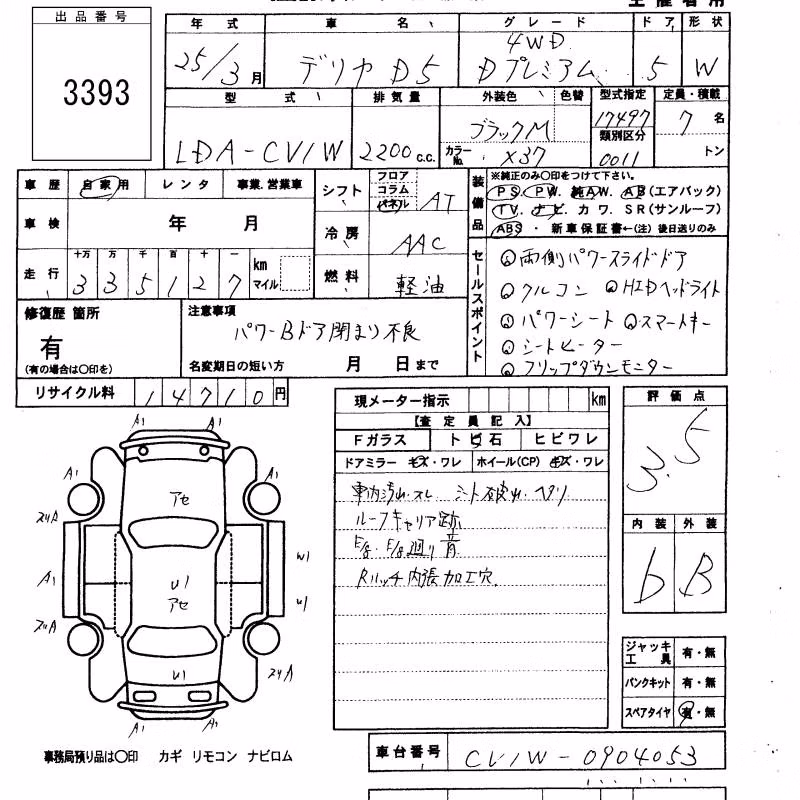 出品番号
3393
年式 車名 グレード ドア 形状
25/3月 デリカ D5 4WD Dプレミアム 5 W
型式 排気量 外装色 色替 型式指定 定員・積載
LDA-CV1W 2200 c.c. ブラックM 17497 7 名
カラーNo. X37 類別区分 0011 トン
車歴 自家用 レンタ 事業.営業車
車検 年 月
走行 十万 万 千 百 十 一 km マイル
3 3 5 1 2 7
シフト フロア コラム パネル AT
冷房 AAC
燃料 軽油
装備品
※純正のみ○印をつけて下さい。
PS. PW. 純AW. AB(エアバック)
TV. ナビ. カワ. SR(サンルーフ)
ABS・新車保証書←(注)後日送りのみ
セールスポイント
両側パワースライドドア
クルコン HIDヘッドライト
パワーシート スマートキー
シートヒーター
フリップダウンモニター
修復歴 箇所
有
(有の場合は○印を)
注意事項
パワーBドア閉まり不良
名変期日の短い方 月 日まで
リサイクル料 14710円
現メーター指示 km
【査定員記入】
Fガラス トビ石 ヒビワレ
ドアミラー キズ・ワレ ホイール(CP) キズ・ワレ
車内汚れ.スレ シート破れ.ヘタリ
ルーフキャリア跡
E/g. F/g廻り音
Rハッチ内張加工穴
評価点
3.5
内装 外装
b B
ジャッキ工具 有・無
パンクキット 有・無
スペアタイヤ 有・無
A1 A1
A1 A1
アセ
スリA
A1 W1
U1 U1
アセ
スリA
U1 スリA
A1 A1
事務局預り品は○印 カギ リモコン ナビロム
車台番号 CV1W-0904053